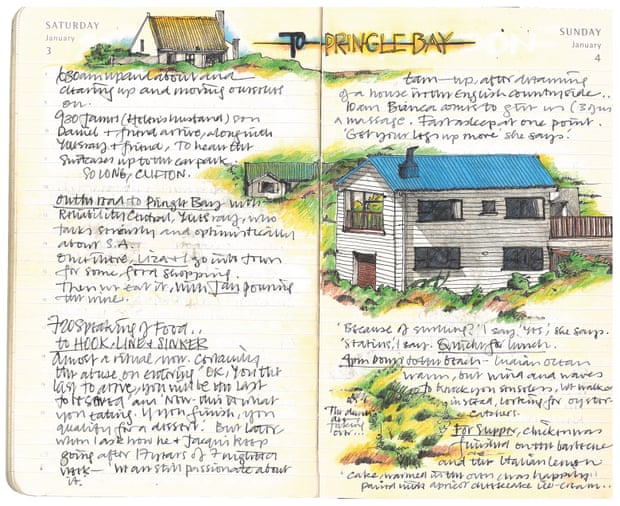 SATURDAY
January
3
6.30am up and about and
clearing up and moving ourselves
on.
9.30 James (Helen's husband) son
Daniel + friend arrive, along with
+ friend, To hear the
Suitcases up to the car park.
SO LONG, CLIFTON.
on the road to Pringle Bay with
Reliability Central, who
talks strongly and optimistically
about S.A.
Once there, Liza + I go into town
for some food shopping.
Then we eat it, with Jan pouring
the wine.
7.20 Speaking of Food..
to HOOK, LINE + SINKER
Almost a ritual now. Containing
the abuse on entering 'OK, You the
last to arrive, you will be the last
to be served' and 'Now this is what
you eating. If you finish, you
qualify for a dessert'. But later
when I ask how he + Jacqui keep
going after 17 years of 7 nights a
week — 'We are still passionate about
it.'
TO PRINGLE BAY
SUNDAY
January
4
7am – up, after dreaming
of a house in the English countryside..
10am Bianca comes to give us (3 of us)
a massage. Fast asleep at one point.
'Get your legs up more' she says.
'Because of smoking?' I say. 'Yes', she says.
'Statins', I say. Quiche for lunch.
3pm Down to the beach – Indian Ocean
warm, but wind and waves
to knock you senseless, so we walk
instead, looking for oyster
catchers.
The
over...
For Supper, chicken was
finished on the barbecue
and the Italian lemon
cake, warmed in the oven was happily
paired with apricot cheesecake ice-cream..